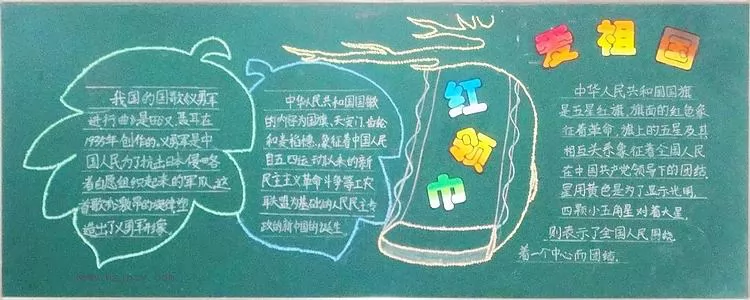 我国的国歌《义勇军
进行曲》是由聂耳在
1935年创作的,义勇军是中
国人民为了抗击日本侵略
者自愿组织起来的军队,这
首歌激昂的旋律
造出了义勇军形象
中华人民共和国国徽
的内容为国旗、天安门、齿轮
和麦稻穗,象征着中国人民
自五四运动以来的新
民主主义革命斗争等工农
联盟为基础的人民民主专
政的新中国的诞生
红领巾
爱祖国
中华人民共和国国旗
是五星红旗,旗面的红色象
征着革命,旗上的五星及其
相互关系象征着全国人民
在中国共产党领导下的团结,
星用黄色是为了显示光明,
四颗小五角星对着大星,
则表示了全国人民围绕
着一个中心而团结.